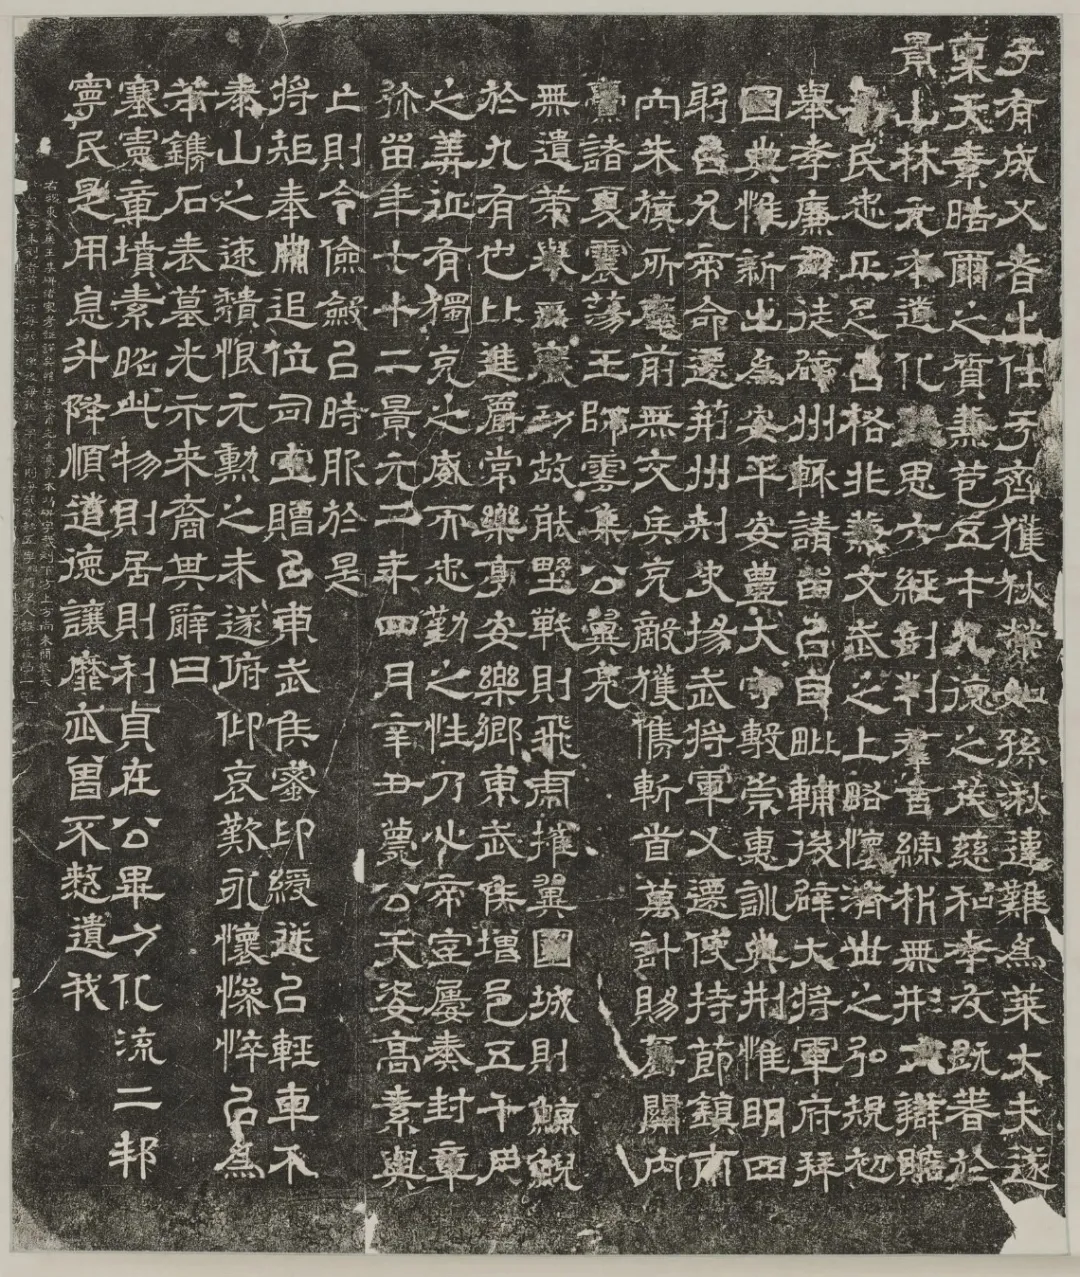 子有成父者出仕于齊獲狄榮如孫湫違難爲萊大夫遂
稟天素晧爾之質兼苞五才九德之茂慈和孝友旣著於
景山林元本道化致思六經剖判羣言綜析無形文辯贍
民忠正足以格非兼文武之上略懷濟世之弘規初
舉孝廉司徒辟州輒請留以自毗輔後辟大將軍府拜
國典惟新出爲安平安豐大守敷崇惠訓典刑惟明四
躬以允帝命遷荊州刺史揚武將軍又遷使持節鎮南
內朱旗所麾前無交兵克敵獲儁斬首萬計賜爵關內
諸夏震蕩王師雲集公翼亮
無遺策舉無廢功故能野戰則飛虎摧翼圍城則鯨鯢
於九有也比進爵常樂亭安樂鄉東武侯增邑五千戶
之美征有獨克之威而忠勤之性乃心帝室屢奏封章
弥留年七十二景元二年四月辛丑薨公天姿高素與
上則令儉斂以時服於是
將矩奉冊追位司空贈以東武侯蜜印綬送以輕車不
泰山之速穨恨元勳之未遂俯仰哀歎永懷慘悴以爲
筆鐫石表墓光示来裔其辭曰
塞憲章墳素昭此物則居則利貞在公畢力化流二邦
寧民是用息升降順道德讓靡忒曾不憖遺我